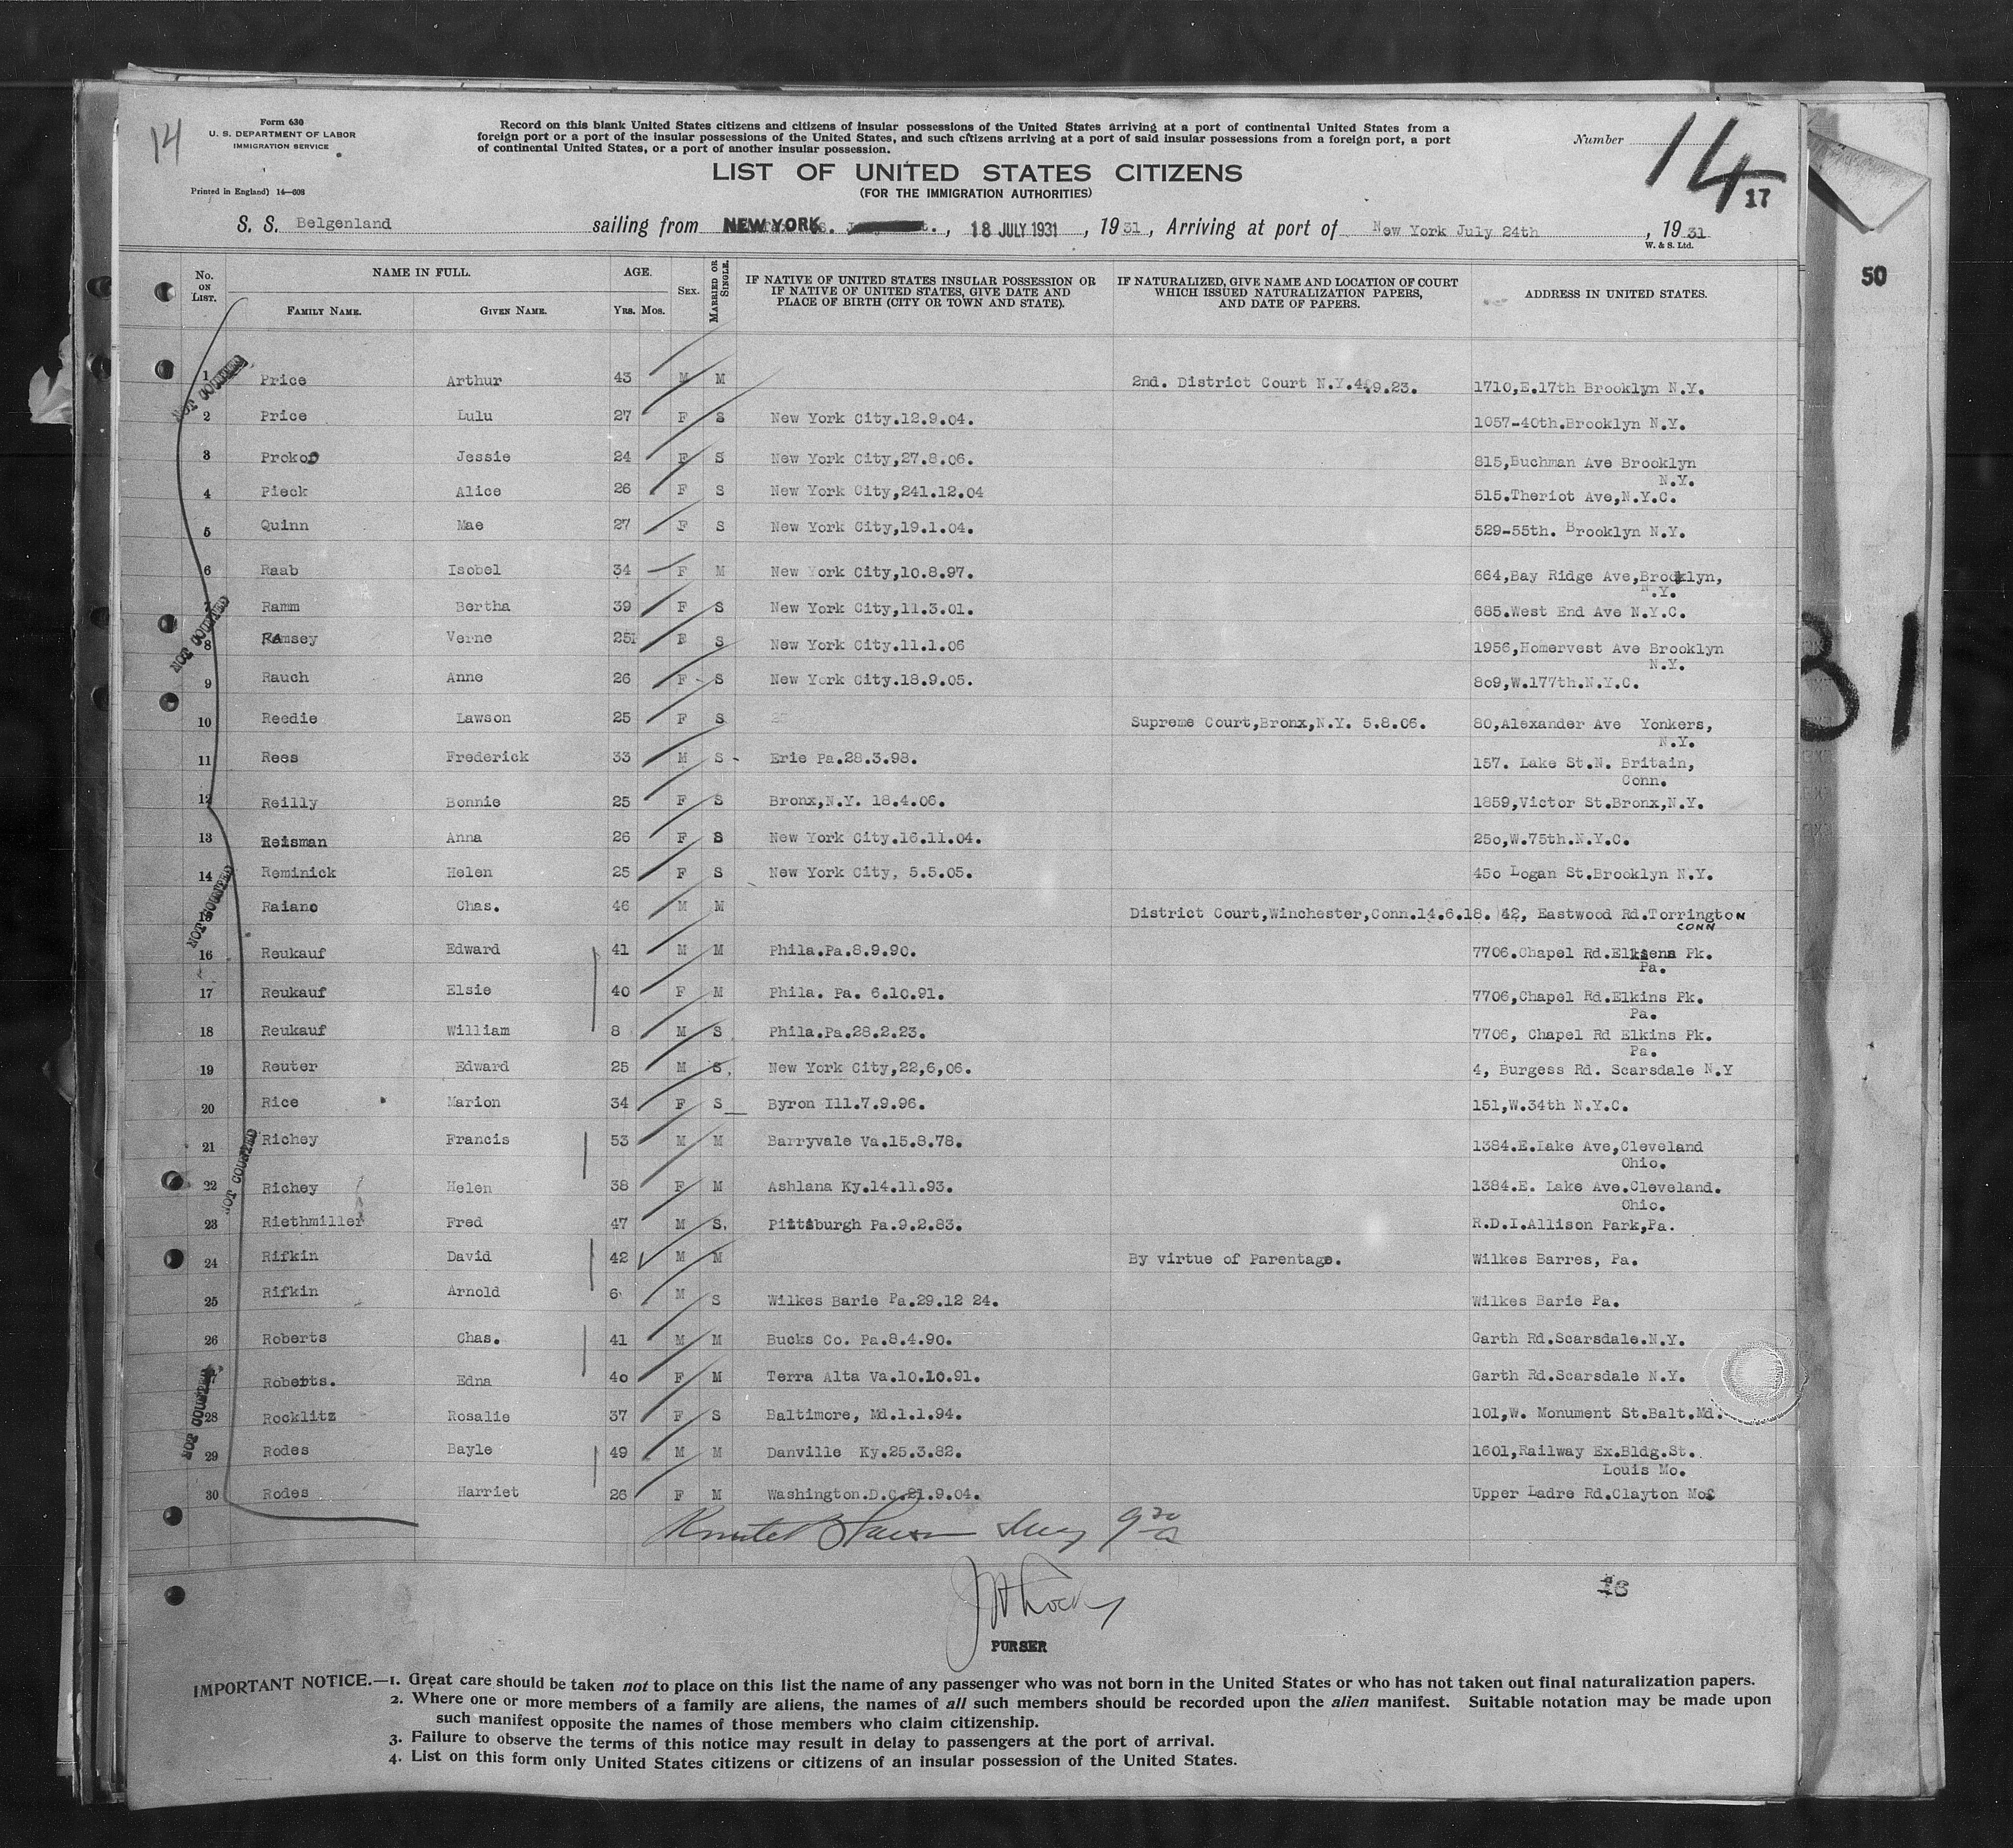 14
Form 630
U. S. DEPARTMENT OF LABOR
IMMIGRATION SERVICE
Printed in England) 14—608
Record on this blank United States citizens and citizens of insular possessions of the United States arriving at a port of continental United States from a
foreign port or a port of the insular possessions of the United States, and such citizens arriving at a port of said insular possessions from a foreign port, a port
of continental United States, or a port of another insular possession.
Number 14
17
LIST OF UNITED STATES CITIZENS
(FOR THE IMMIGRATION AUTHORITIES)
S. S. Belgenland sailing from NEW YORK. , 18 JULY 1931 , 1931 , Arriving at port of New York July 24th , 1931
W. & S. Ltd.
50
No. ON LIST. NAME IN FULL. FAMILY NAME. GIVEN NAME. AGE. YRS. MOS. SEX. MARRIED OR SINGLE. IF NATIVE OF UNITED STATES INSULAR POSSESSION OR IF NATIVE OF UNITED STATES, GIVE DATE AND PLACE OF BIRTH (CITY OR TOWN AND STATE). IF NATURALIZED, GIVE NAME AND LOCATION OF COURT WHICH ISSUED NATURALIZATION PAPERS, AND DATE OF PAPERS. ADDRESS IN UNITED STATES.
1 Price Arthur 43 M M 2nd. District Court N.Y.4.9.23. 1710,E.17th Brooklyn N.Y.
2 Price Lulu 27 F S New York City.12.9.04. 1057-40th.Brooklyn N.Y.
3 Prokop Jessie 24 F S New York City,27.8.06. 815,Buchman Ave Brooklyn
N.Y.
4 Pieck Alice 26 F S New York City,241.12.04 515.Theriot Ave,N.Y.C.
5 Quinn Mae 27 F S New York City,19.1.04. 529-55th. Brooklyn N.Y.
6 Raab Isobel 34 F M New York City,10.8.97. 664,Bay Ridge Ave,Brooklyn,
N.Y.
7 Ramm Bertha 39 F S New York City,11.3.01. 685.West End Ave N.Y.C.
8 Ramsey Verne 25 F S New York City.11.1.06 1956,Homervest Ave Brooklyn
N.Y.
9 Rauch Anne 26 F S New York City.18.9.05. 809,W.177th.N.Y.C.
10 Reedie Lawson 25 F S Supreme Court,Bronx,N.Y. 5.8.06. 80,Alexander Ave Yonkers,
N.Y.
11 Rees Frederick 33 M S Erie Pa.28.3.98. 157. Lake St.N. Britain,
Conn.
12 Reilly Bonnie 25 F S Bronx,N.Y. 18.4.06. 1859,Victor St.Bronx,N.Y.
13 Reisman Anna 26 F S New York City.16.11.04. 25o,W.75th.N.Y.C.
14 Reminick Helen 25 F S New York City, 5.5.05. 45o Logan St.Brooklyn N.Y.
15 Raiano Chas. 46 M M District Court,Winchester,Conn.14.6.18. 42, Eastwood Rd.Torrington
CONN
16 Reukauf Edward 41 M M Phila.Pa.8.9.90. 7706.Chapel Rd. Pk.
Pa.
17 Reukauf Elsie 40 F M Phila. Pa. 6.10.91. 7706,Chapel Rd.Elkins Pk.
Pa.
18 Reukauf William 8 M S Phila.Pa.28.2.23. 7706, Chapel Rd Elkins Pk.
Pa.
19 Reuter Edward 25 M S. New York City,22,6,06. 4, Burgess Rd. Scarsdale N.Y
20 Rice Marion 34 F S Byron Ill.7.9.96. 151,W.34th N.Y.C.
21 Richey Francis 53 M M Barryvale Va.15.8.78. 1384.E.Lake Ave,Cleveland
Ohio.
22 Richey Helen 38 F M Ashlana Ky.14.11.93. 1384.E. Lake Ave.Cleveland.
Ohio.
23 Riethmiller Fred 47 M S. Pittsburgh Pa.9.2.83. R.D.I.Allison Park,Pa.
24 Rifkin David 42 M M By virtue of Parentage. Wilkes Barres, Pa.
25 Rifkin Arnold 6 M S Wilkes Barie Pa.29.12 24. Wilkes Barie Pa.
26 Roberts Chas. 41 M M Bucks Co. Pa.8.4.90. Garth Rd.Scarsdale.N.Y.
27 Roberts. Edna 4o F M Terra Alta Va.10.10.91. Garth Rd.Scarsdale N.Y.
28 Rocklitz Rosalie 37 F S Baltimore, Md.1.1.94. 101,W. Monument St.Balt.Md.
29 Rodes Bayle 49 M M Danville Ky.25.3.82. 1601,Railway Ex.Bldg.St.
Louis Mo.
30 Rodes Harriet 26 F M Washington.D.C.21.9.04. Upper Ladre Rd.Clayton Mo
NOT COUNTED
NOT COUNTED
NOT COUNTED
NOT COUNTED
NOT COUNTED
31
PURSER
IMPORTANT NOTICE.—1. Great care should be taken not to place on this list the name of any passenger who was not born in the United States or who has not taken out final naturalization papers.
2. Where one or more members of a family are aliens, the names of all such members should be recorded upon the alien manifest. Suitable notation may be made upon
such manifest opposite the names of those members who claim citizenship.
3. Failure to observe the terms of this notice may result in delay to passengers at the port of arrival.
4. List on this form only United States citizens or citizens of an insular possession of the United States.